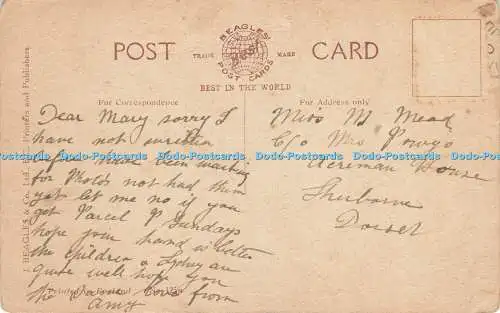 POST CARD
BEAGLES'
TRADE MARK
POST CARDS
BEST IN THE WORLD
For Correspondence
For Address only
Dear Mary sorry I
have not written
before have been waiting
for Photos not had them
yet let me no if you
got Parcel P Sundays
hope your hand is better
the children & Sydney are
quite well hope you
the same love from
Amy
Miss M Mead
C/o Mrs
Acreman House
Sherborne
Dorset
J. BEAGLES & Co., Ltd., Printers and Publishers.
Printed in England
Dodo-Postcards Dodo-Postcards Dodo-Postcards Dodo-Postcards Dodo-Postcards